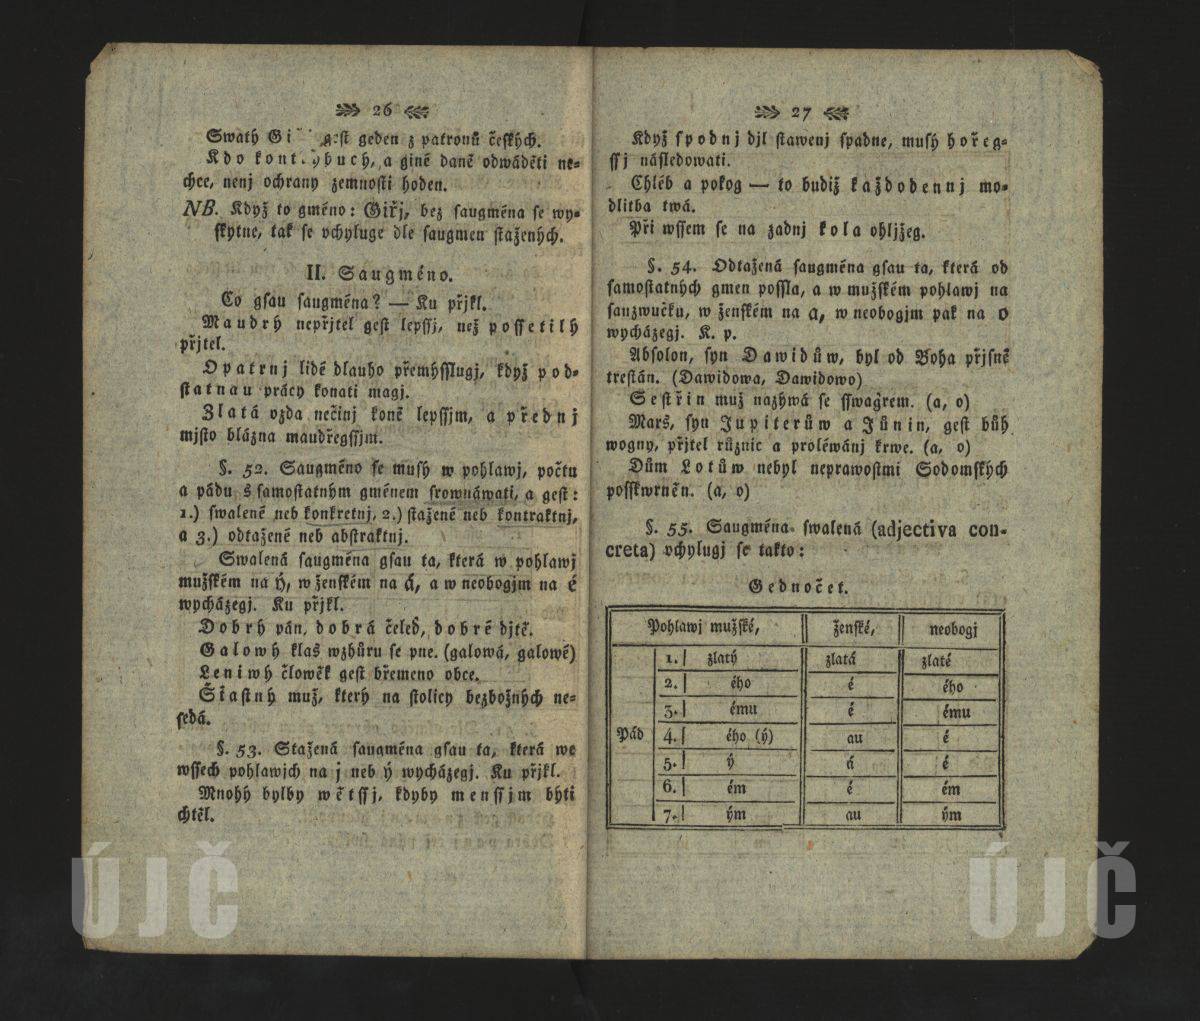 26
Swatý Gi gest geden z patronů českých.
Kdo kont.ybuch, a giné daně odwáděti ne-
chce, nenj ochrany zemnosti hoden.
NB. Když to gméno: Giřj, bez saugména se wy-
skytne, tak se vchyluge dle saugmen stažených.
II. Saugméno.
Co gsau saugména? — Ku přjkl.
Maudrý nepřjtel gest lepssj, než possetilý
přjtel.
Opatrnj lidé dlauho přemýsslugj, když pod-
statnau prácy konati magj.
Zlatá vzda nečinj koně lepssjm, a přednj
mjsto blázna maudřegssjm.
§. 52. Saugméno se musý w pohlawj, počtu
a pádu s samostatným gménem srownáwati, a gest:
1.) swalené neb konkretnj, 2.) stažené neb kontraktnj,
a 3.) odtažené neb abstraktnj.
Swalená saugména gsau ta, která w pohlawj
mužském na ý, w ženském na á, a w neobogjm na é
wycházegj. Ku přjkl.
Dobrý pán, dobrá čeleď, dobré djtě.
Galowý klas wzhůru se pne. (galowá, galowé)
Leniwý člowěk gest břemeno obce.
Šťastný muž, který na stolicy bezbožných ne-
sedá.
§. 53. Stažená saugména gsau ta, která we
wssech pohlawjch na j neb ý wycházegj. Ku přjkl.
Mnohý bylby wětssj, kdyby menssjm býti
chtěl.
27
Když spodnj djl stawenj spadne, musý hořeg-
ssj následowati.
Chléb a pokog — to budiž každodennj mo-
dlitba twá.
Při wssem se na zadnj kola ohljžeg.
§. 54. Odtažená saugména gsau ta, která od
samostatných gmen possla, a w mužském pohlawj na
sauzwučku, w ženském na a, w neobogjm pak na o
wycházegj. K. p.
Absolon, syn Dawidůw, byl od Boha přjsně
trestán. (Dawidowa, Dawidowo)
Sestřin muž nazýwá se sswagrem. (a, o)
Mars, syn Jupiterůw a Jůnin, gest bůh
wogny, přjtel různic a proléwánj krwe. (a, o)
Dům Lotůw nebyl neprawostmi Sodomských
posskwrněn. (a, o)
§. 55. Saugména swalená (adjectiva con-
creta) vchylugj se takto:
Gednočet.
Pohlawj mužské, ženské, neobogj
1. zlatý zlatá zlaté
2. ého é ého
3. ému é ému
Pád 4. ého (ý) au é
5. ý á é
6. ém é ém
7. ým au ým
ÚJČ ÚJČ